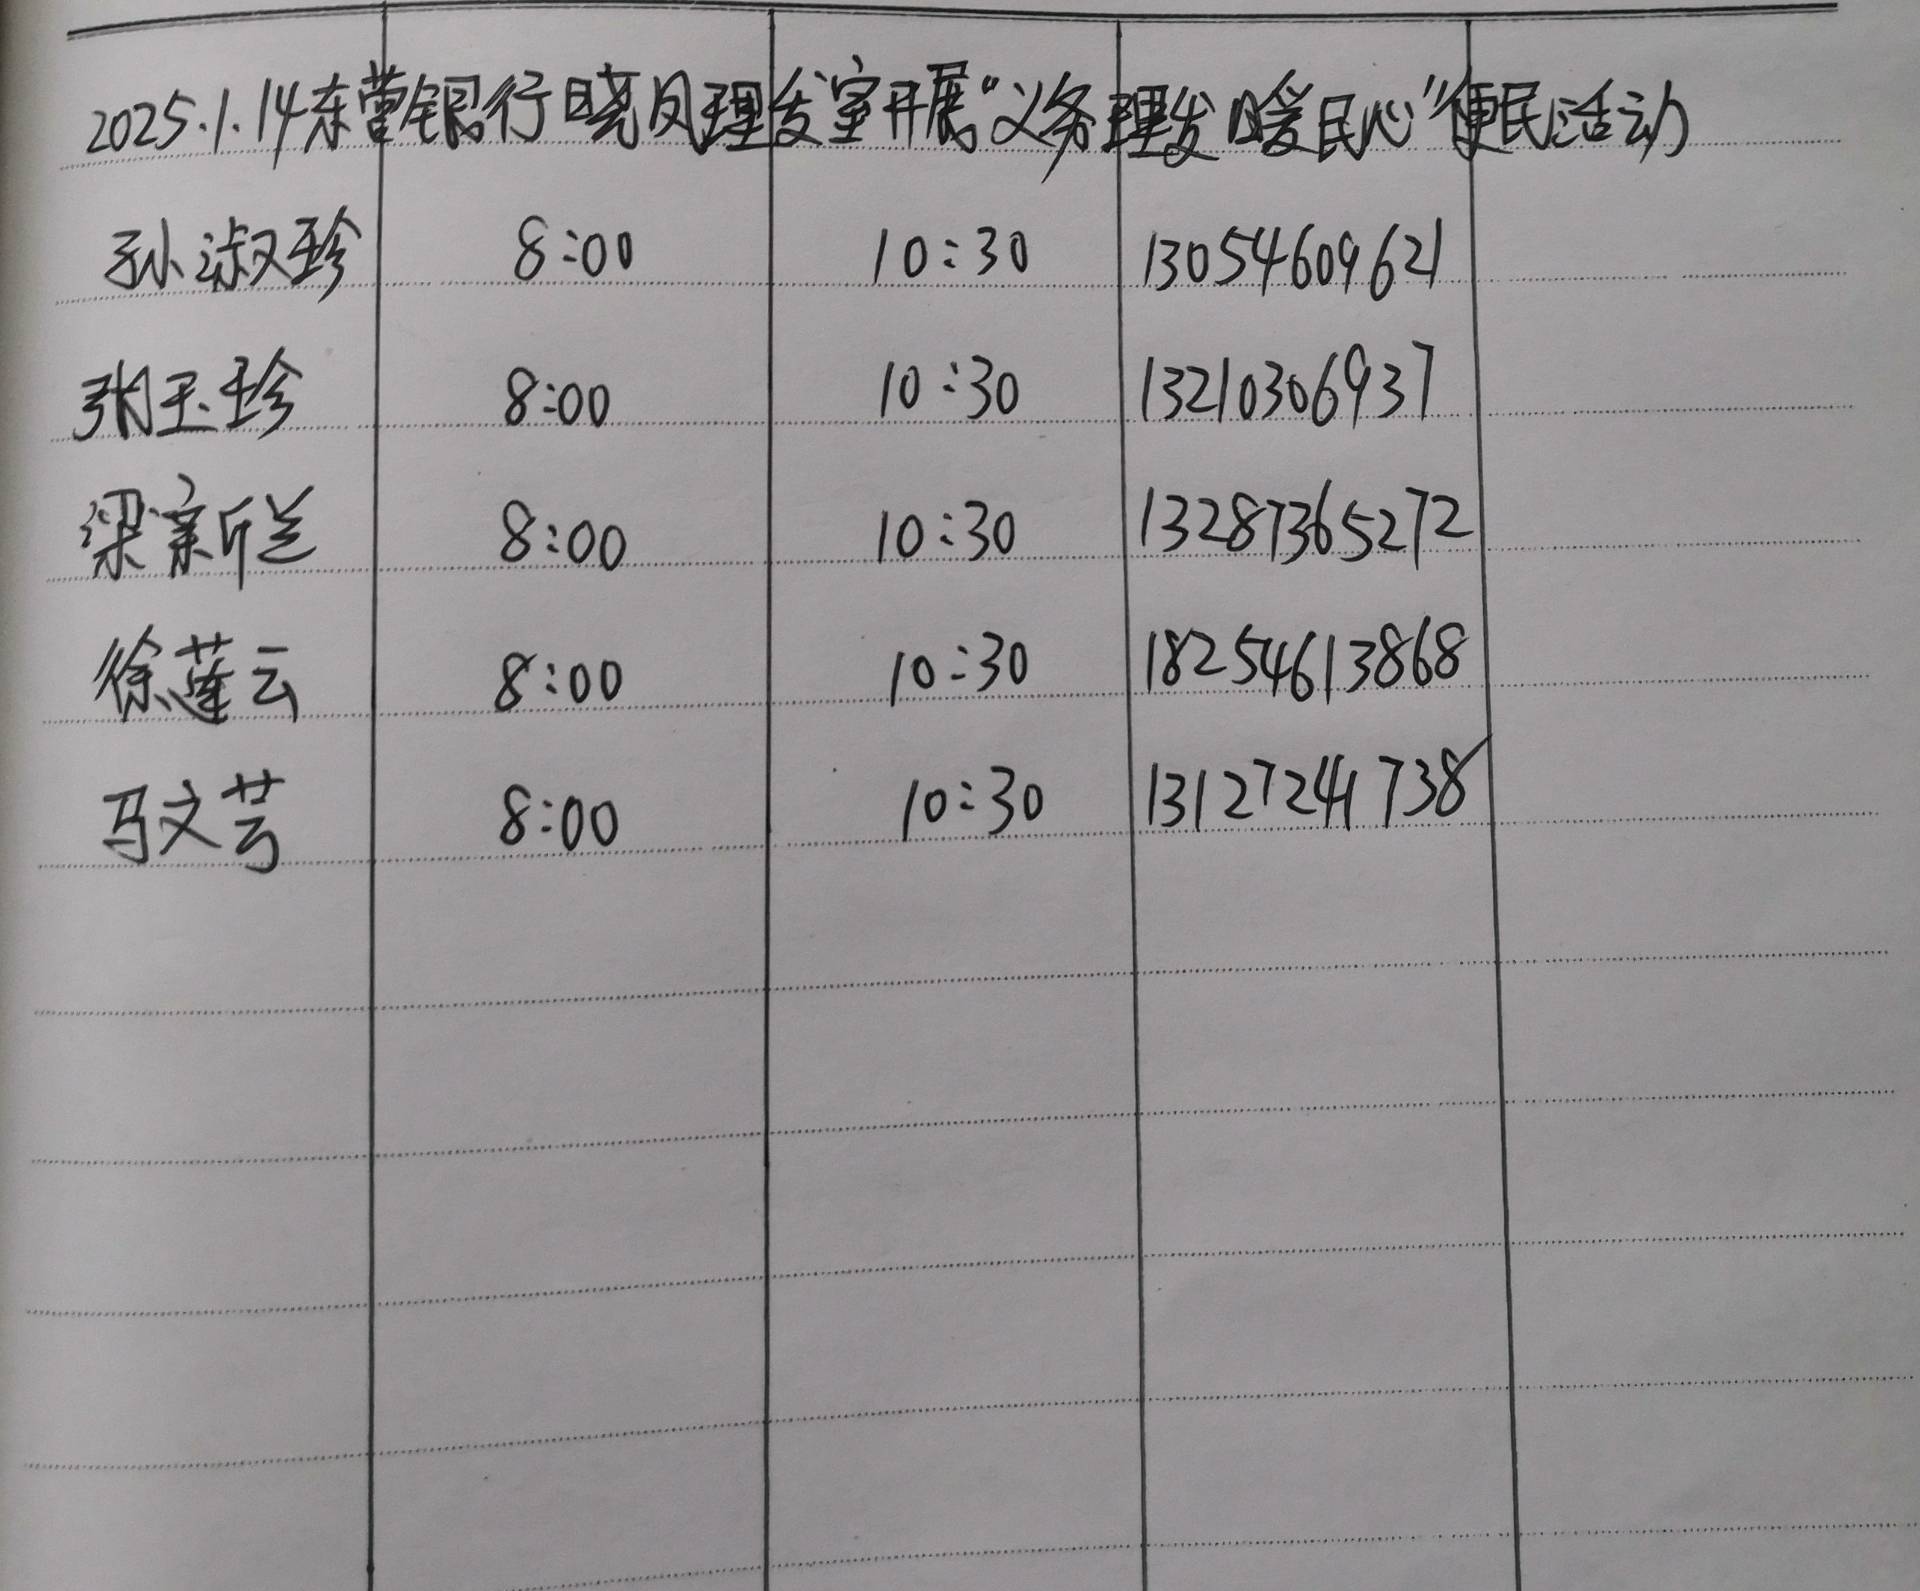 2025.1.14东营银行晓凤理发室开展“义务理发暖民心”便民活动
孙淑珍 8:00 10:30 13054609621
张玉珍 8:00 10:30 13210306937
梁新兰 8:00 10:30 13287365272
徐莲云 8:00 10:30 18254613868
马文芳 8:00 10:30 13127241738